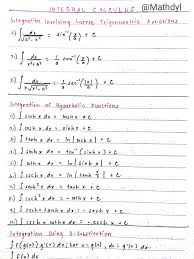 INTEGRAL CALCULUS @Mathdyl
Integration Involving Inverse Trigonometric Functions
∫ dx/√(a²-x²) = sin⁻¹(x/a) + C
∫ dx/(a²+x²) = 1/a tan⁻¹(x/a) + C
∫ dx/(x√(x²-a²)) = 1/a sec⁻¹(|x|/a) + C
Integration of Hyperbolic Functions
∫ sinh x dx = cosh x + C
∫ cosh x dx = sinh x + C
∫ tanh x dx = ln |cosh x| + C
∫ coth x dx = ln |sinh x| + C
∫ sech x dx = tan⁻¹(sinh x) + C
∫ csch x dx = ln
∫ sech² x dx = tanh x + C
∫ csch² x dx = -coth x + C
∫ sech x tanh x dx = -sech x + C
∫ csch x coth x dx = -csch x + C
Integration Using U-Substitution
∫ f(g(x)) g'(x) dx let u = g(x), du = g'(x) dx
∫ f(u) du